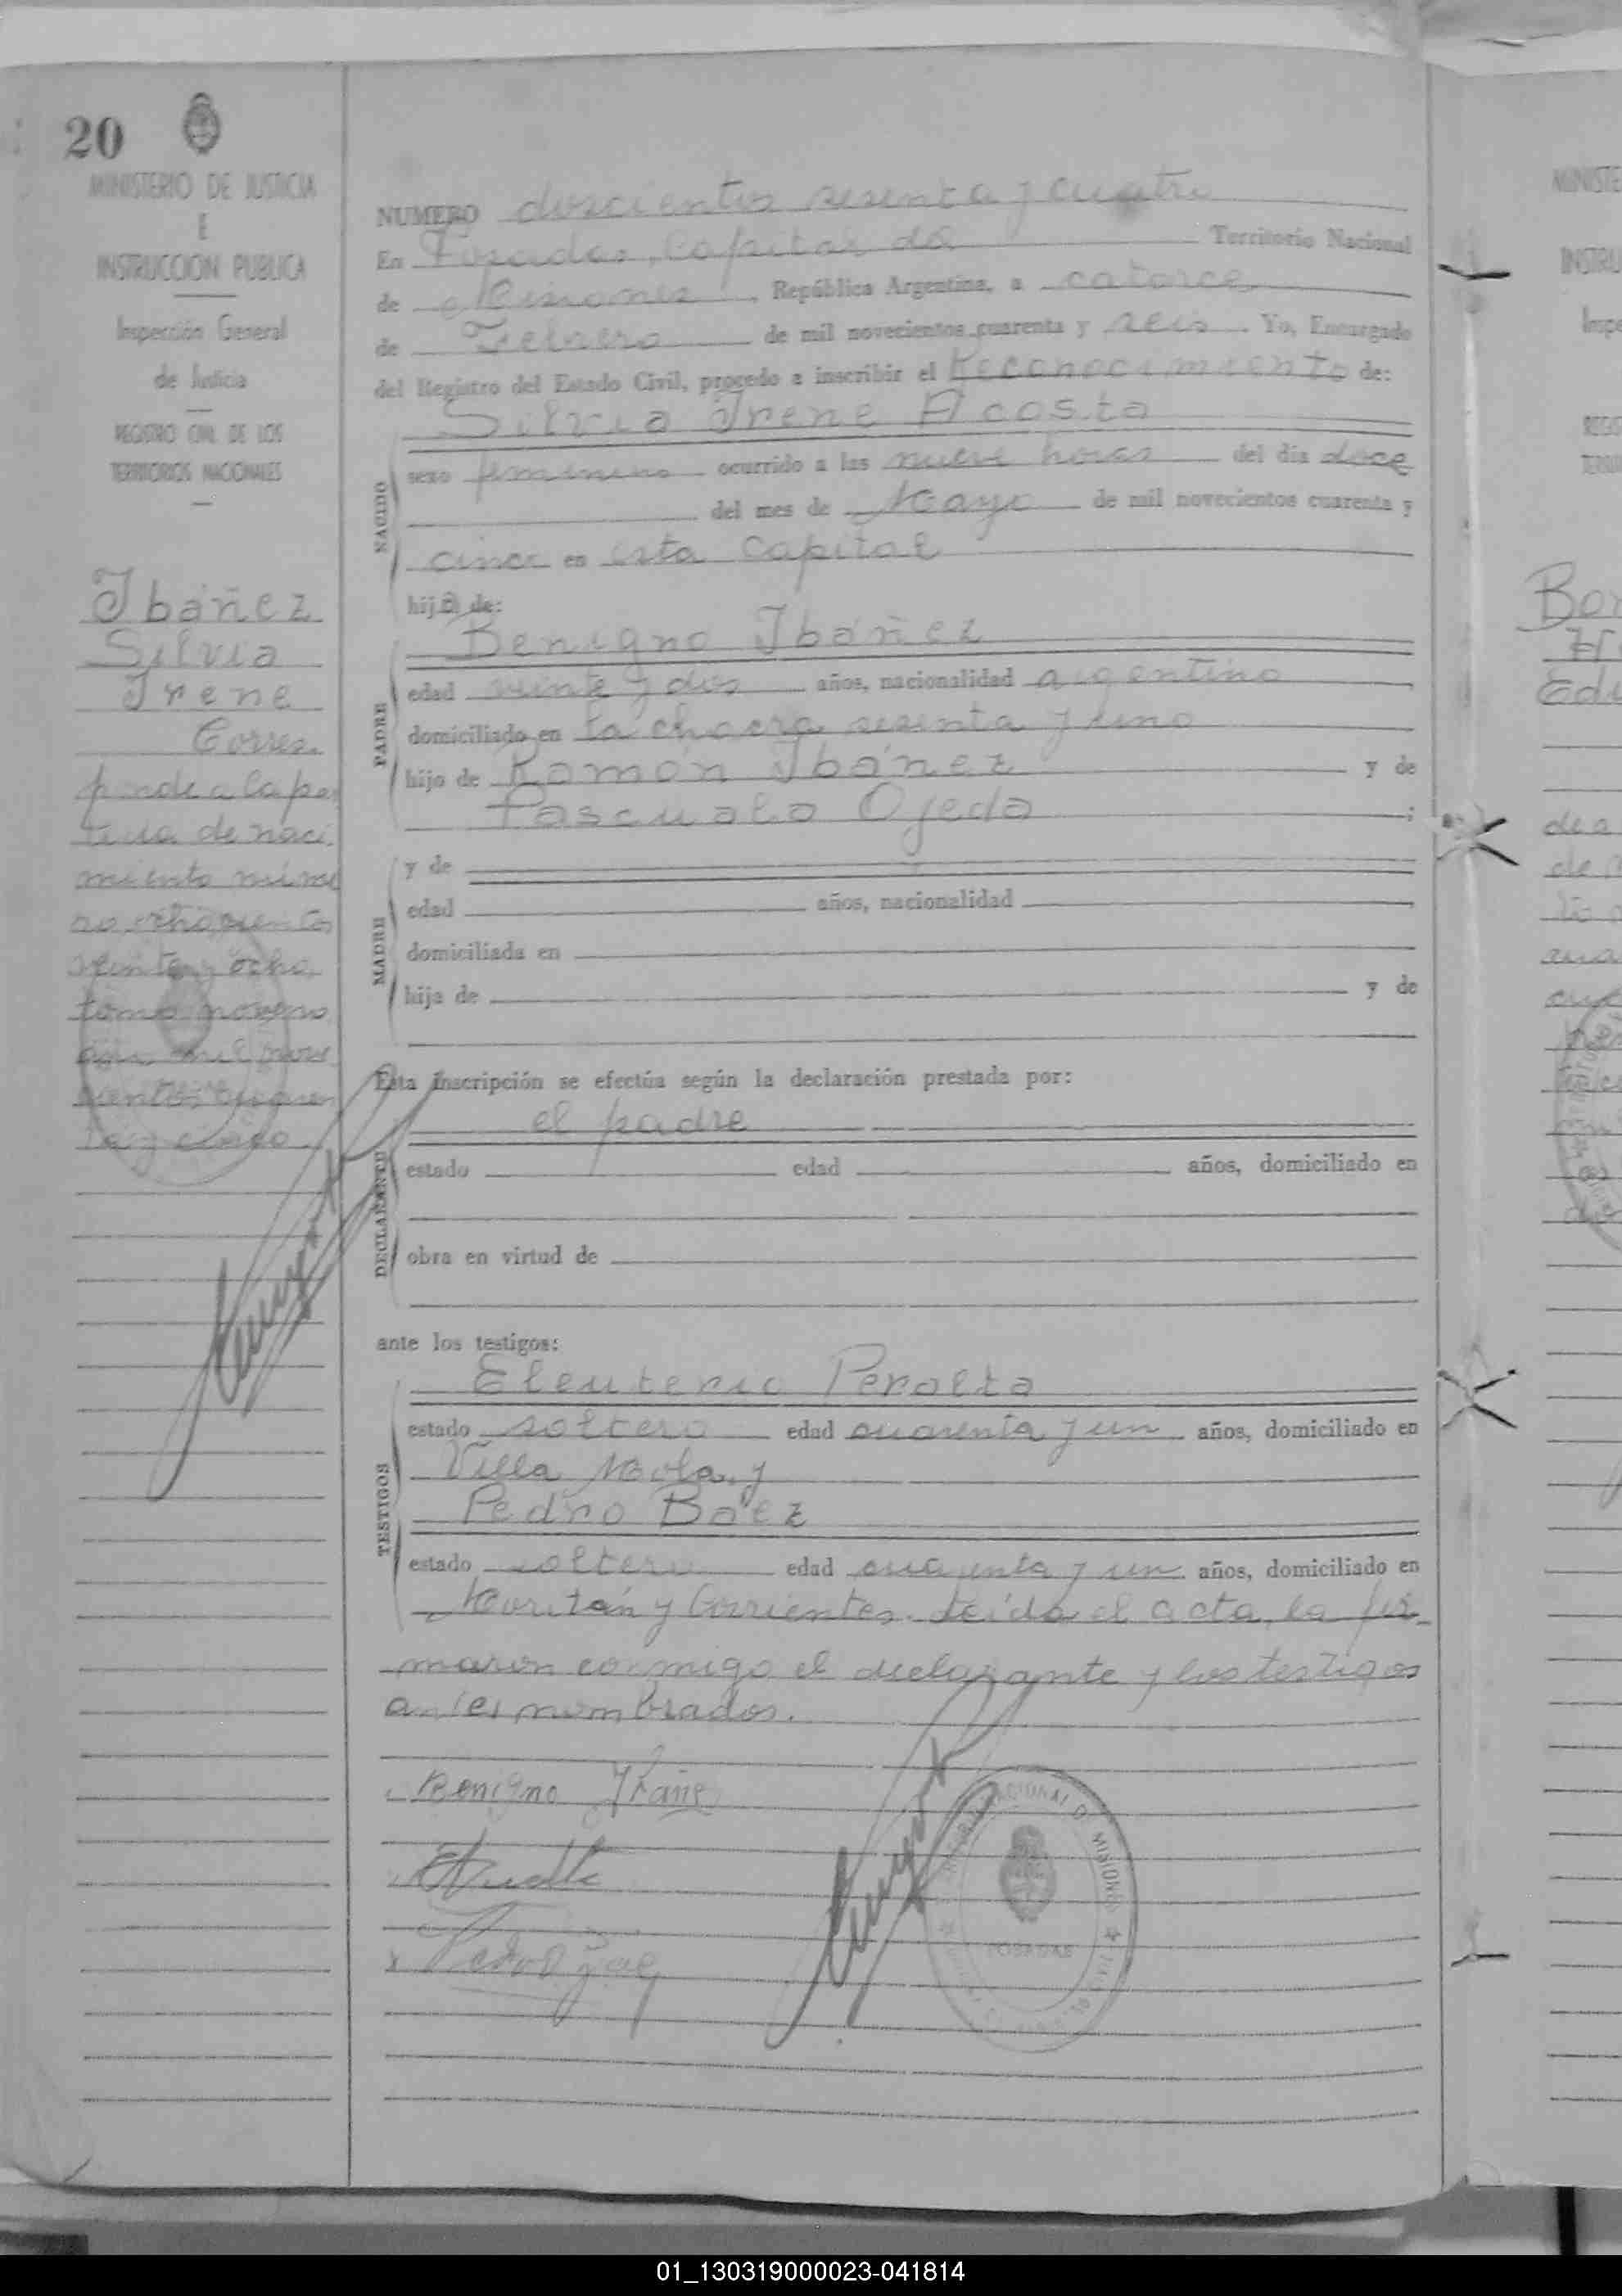 20
MINISTERIO DE JUSTICIA
E
INSTRUCCION PUBLICA
Inspección General
de Justicia
REGISTRO CIVIL DE LOS
TERRITORIOS NACIONALES
Ibáñez
Silvia
Irene
Corres-
ponde a la par
tida de naci
miento núme
ro ochocientos
veinte y ocho,
tomo noveno
año mil nove
cientos cuaren
ta y cinco
NUMERO doscientos sesenta y cuatro
En Posadas, Capital del Territorio Nacional
de Misiones, República Argentina, a catorce
de Febrero de mil novecientos cuarenta y seis. Yo, Encargado
del Registro del Estado Civil, procedo a inscribir el Reconocimiento de:
Silvia Irene Acosta
NACIDO
sexo femenino ocurrido a las nueve horas del día doce
del mes de Mayo de mil novecientos cuarenta y
cinco en esta Capital
hija de:
Benigno Ibáñez
PADRE
edad veinte y dos años, nacionalidad argentino
domiciliado en la chacra sesenta y uno
hijo de Ramón Ibáñez y de
Pascuala Ojeda ;
MADRE
y de
edad años, nacionalidad
domiciliada en
hija de y de
Esta inscripción se efectúa según la declaración prestada por:
el padre
DECLARANTE
estado edad años, domiciliado en
obra en virtud de
ante los testigos:
Eleuterio Peralta
TESTIGOS
estado soltero edad cuarenta y un años, domiciliado en
Villa Mola, y
Pedro Báez
estado soltero edad cuarenta y un años, domiciliado en
Moritán y Corrientes. Leída el acta, la fir-
maron conmigo el declarante y los testigos
antes nombrados.
Benigno Ibañe
NACIONAL DE MISIONES
POSADAS
MINISTE
INSTRU
Inspe
REGIS
TERRI
01_130319000023-041814